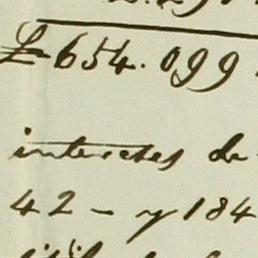 £ 654.099
intereses de
42 - y 184